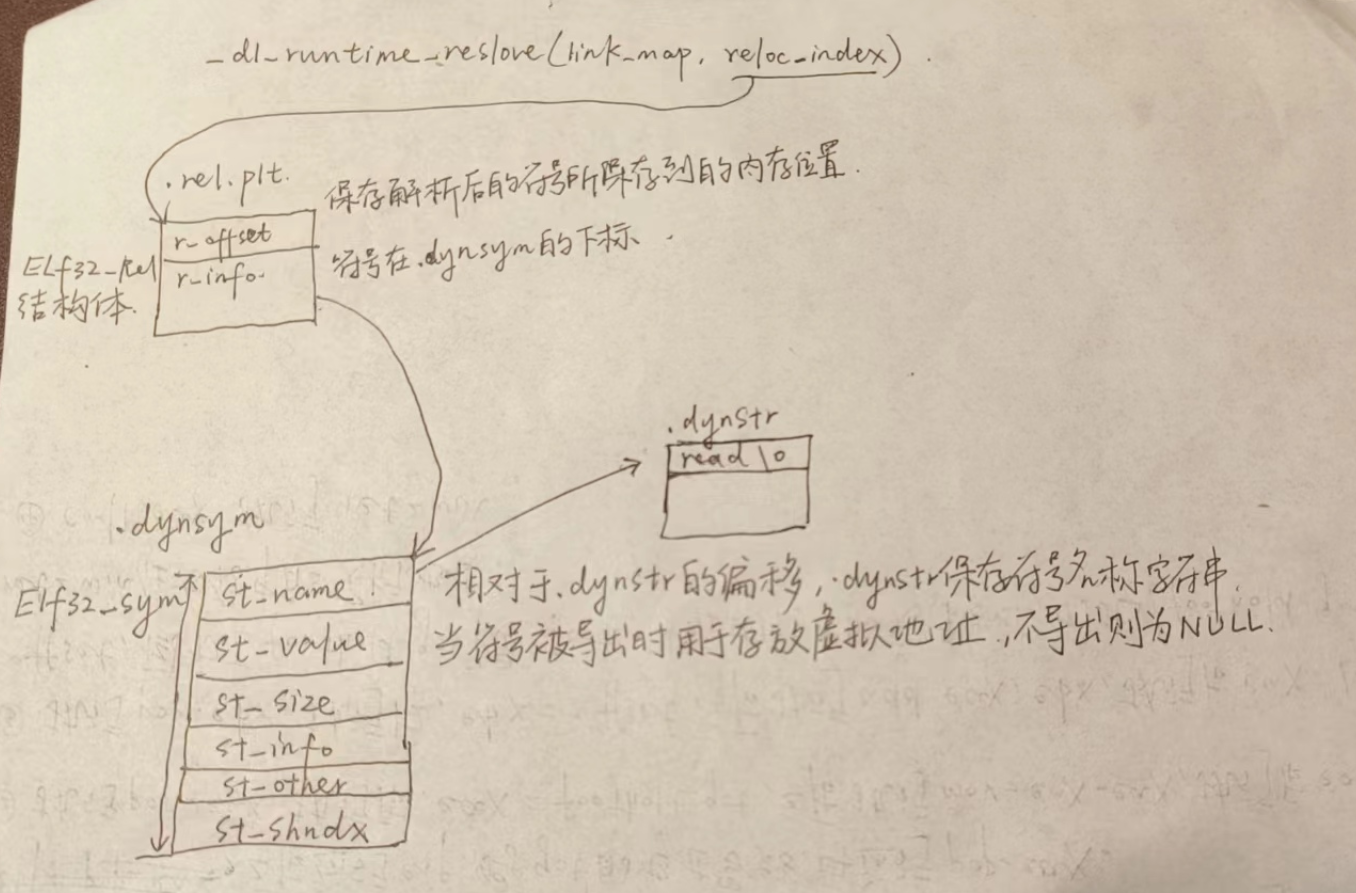 _dl_runtime_reslove(link_map, reloc_index).
.rel.plt.
保存解析后的符号所保存到的内存位置.
r_offset
符号在.dynsym的下标.
ELf32_Rel
r_info.
结构体.
.dynstr
read \0
.dynsym
Elf32_sym
st_name
相对于.dynstr的偏移,.dynstr保存符号名称字符串.
st_value
当符号被导出时用于存放虚拟地址,不导出则为NULL.
st_size
st_info
st_other
st_shndx